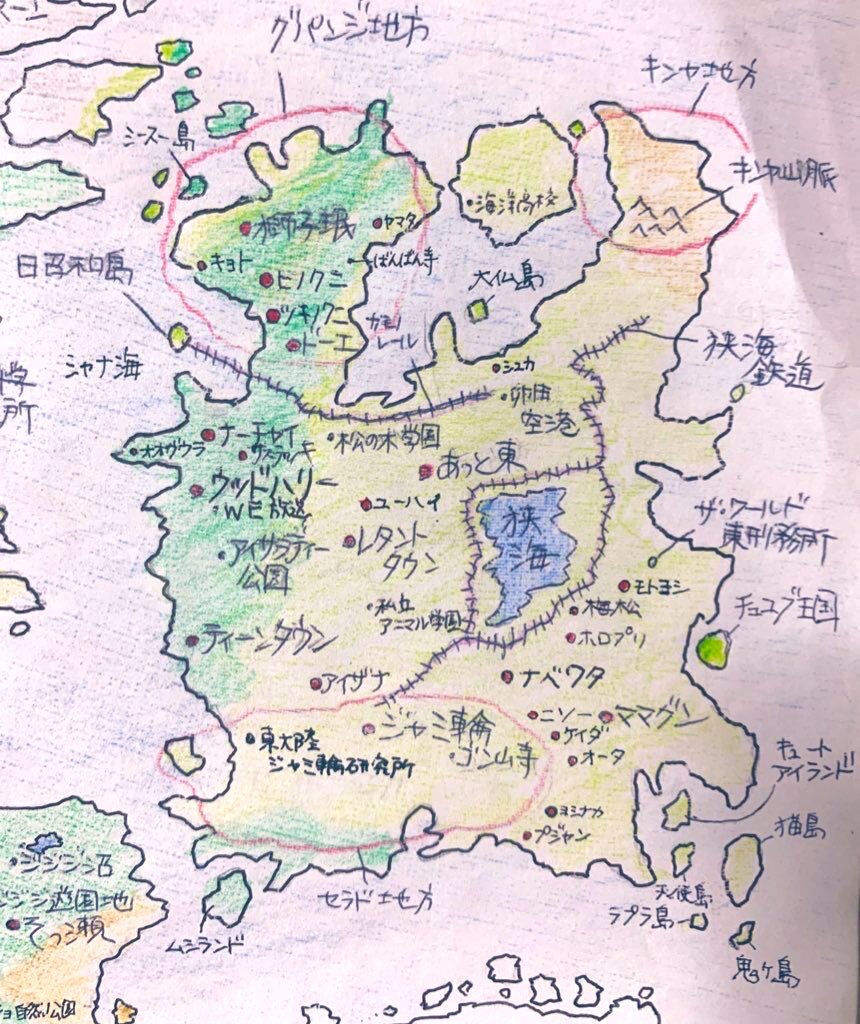 グリパンジ地方
キンヤ地方
シースー島
キンヤ山脈
海洋高校
獅子珉
ヤマタ
日召和白島
キヨト
ばんばん寺
ヒノクニ
大仏島
ツキノクニ
カモノ
レール
ドーエ
シャナ海
シュカ
狭海
鉄道
卵田
空港
オオヴウラ
ナーチャイ
松の木学園
サスブッキ
あっと東
ウッドハリー
WE放送
ユーハイ
狭
海
ザ・ワールド
東刑務所
アイサラティー
公園
レタント
タウン
モトヨシ
私立
アニマル学園
梅松
チュユブ王国
ティーンタウン
ホロプリ
アイザナ
ナベワタ
ジャミ輪
ニソー
ママグン
東大陸
ジャミ輪研究所
ゴン山寺
ケイダ
オータ
キュート
アイランド
ヨシナカ
プジャン
猫島
ジジジ沼
ジジ遊園地
そっ瀬
セラド地方
天使島
ラプラ島
ムシランド
鬼ヶ島
自然公園